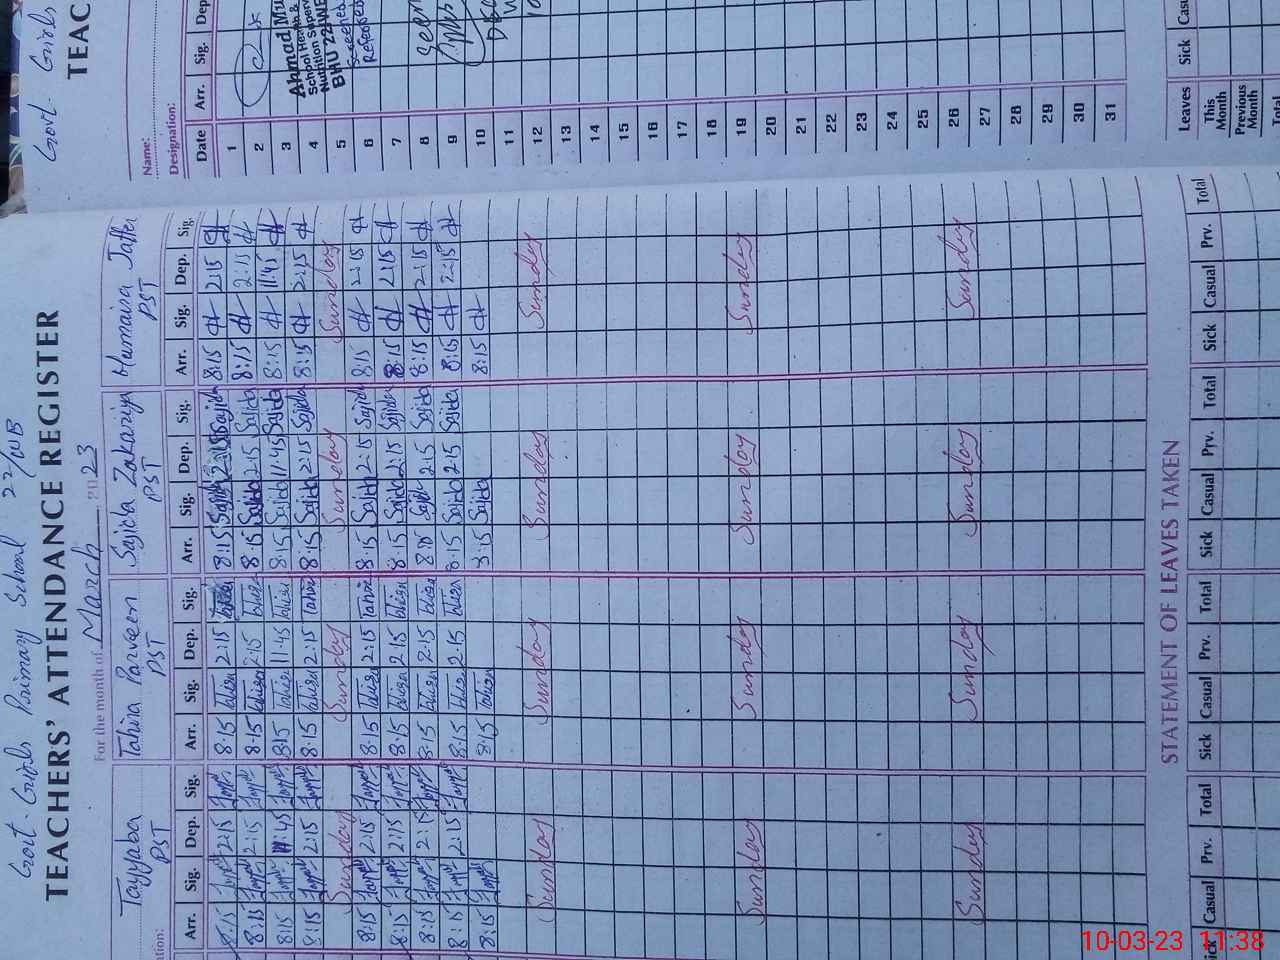 Govt. Girls Primary School 22/WB
TEACHERS' ATTENDANCE REGISTER
For the month of March 2023
Tayyaba Tahira Parveen Sajida Zakariya Humaira Jaffer
PST PST PST PST
Arr. Sig. Dep. Sig. Arr. Sig. Dep. Sig. Arr. Sig. Dep. Sig. Arr. Sig. Dep. Sig.
8:15 2:15 8:15 Tahira 2:15 8:15 Sajida 2:15 Sajida 8:15 2:15
8:15 2:15 8:15 Tahira 2:15 Tahira 8:15 Sajida 2:15 Sajida 8:15 2:15
8:15 11:45 8:15 Tahira 11:45 Tahira 8:15 Sajida 11:45 Sajida 8:15 11:45
8:15 2:15 8:15 Tahira 2:15 Tahira 8:15 Sajida 2:15 Sajida 8:15 2:15
Sunday Sunday Sunday Sunday
8:15 2:15 8:15 Tahira 2:15 Tahira 8:15 Sajida 2:15 Sajida 8:15 2:15
8:15 2:15 8:15 Tahira 2:15 Tahira 8:15 Sajida 2:15 Sajida 8:15 2:15
8:15 2:15 8:15 Tahira 2:15 Tahira 8:15 Sajida 2:15 Sajida 8:15 2:15
8:15 2:15 8:15 Tahira 2:15 Tahira 8:15 Sajida 2:15 Sajida 8:15 2:15
8:15 8:15 Tahira 8:15 Sajida 8:15
Sunday Sunday Sunday Sunday
Sunday Sunday Sunday Sunday
Sunday Sunday Sunday Sunday
STATEMENT OF LEAVES TAKEN
Casual Prv. Total Sick Casual Prv. Total Sick Casual Prv. Total Sick Casual Prv. Total
Govt. Girls
TEAC
Name:
Designation:
Date Arr. Sig. Dep
1
2
3 Ahmad
4 School Health &
Nutrition Supervisor
5 BHU 22/WB
6
7
8
9
10
11
12
13
14
15
16
17
18
19
20
21
22
23
24
25
26
27
28
29
30
31
Leaves Sick Cas
This Month
Previous Month
Total
10-03-23 11:38